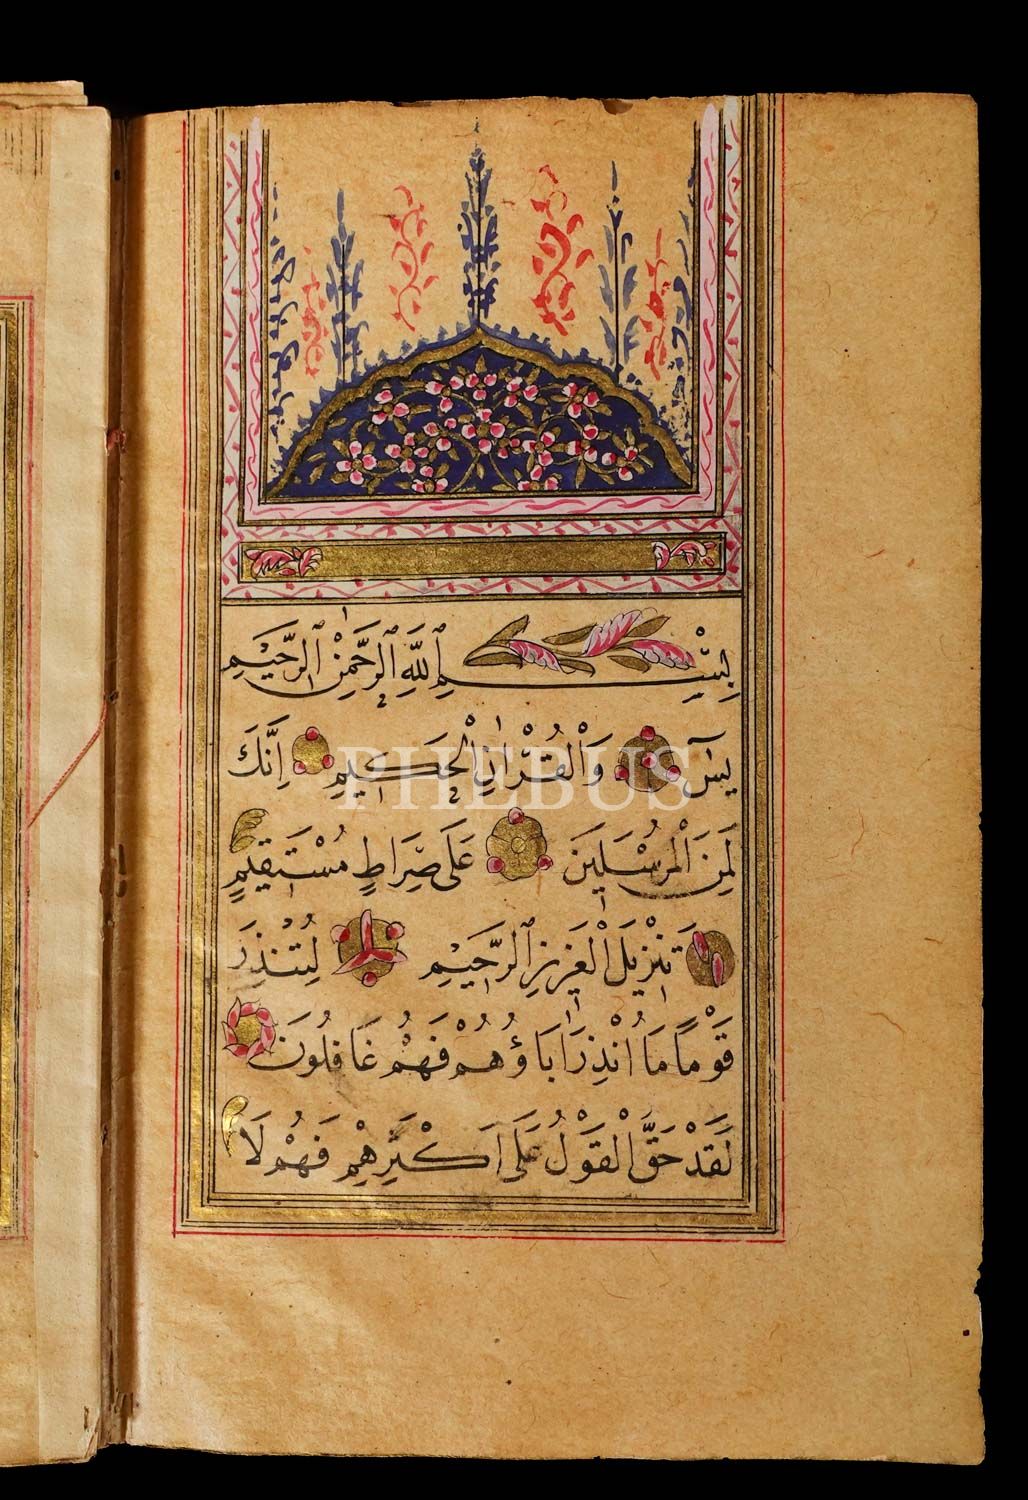 بِسْمِ ٱللَّهِ ٱلرَّحْمٰنِ ٱلرَّحِيمِ
يٰسٓ وَٱلْقُرْاٰنِ ٱلْحَكِيمِ اِنَّكَ
لَمِنَ ٱلْمُرْسَلِينَ عَلَى صِرَاطٍ مُسْتَقِيمٍ
تَنْزِيلَ ٱلْعَزِيزِ ٱلرَّحِيمِ لِتُنْذِرَ
قَوْمًا مَا اُنْذِرَ اٰبَاؤُهُمْ فَهُمْ غَافِلُونَ
لَقَدْ حَقَّ ٱلْقَوْلُ عَلَى اَكْثَرِهِمْ فَهُمْ لَا
PHEBUS